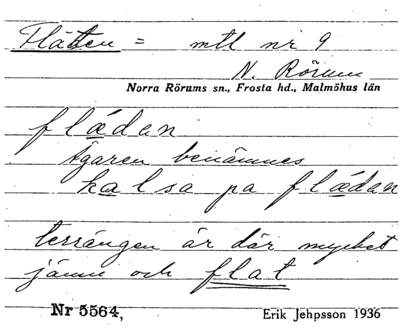 Flätten = mtl nr 9
N. Rörum
Norra Rörums sn., Frosta hd., Malmöhus län
flädan
Ägaren benämnes
kalsa pa flädan
terrängen är där mycket
jämn och flat
Nr 5564,
Erik Jehpsson 1936